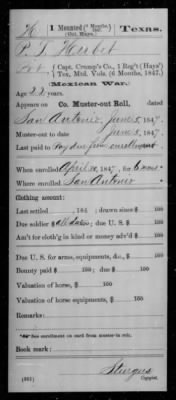 H | 1 Mounted (6 Months, '47) (Col. Hays.) | Texas.
P. T. Herbet
Pvt., { Capt. Crump's Co., 1 Reg't (Hays')
Tex. Mtd. Vols. (6 Months, 1847.)
(Mexican War.)
Age 22 years.
Appears on Co. Muster-out Roll, dated
San Antonio, June 5, 1847.
Muster-out to date June 5, 1847.
Last paid to Pay due from enrollment
When enrolled April 20, 1847, for 6 mos
Where enrolled San Antonio
Clothing account:
Last settled , 184 ; drawn since $ 100
Due soldier $ 100; due U. S. $ 100
Am't for cloth'g in kind or money adv'd $ 100
Due U. S. for arms, equipments, &c., $ 100
Bounty paid $ 100; due $ 100
Valuation of horse, $ 100
Valuation of horse equipments, $ 100
Remarks:
*See enrollment on card from muster-in roll.
Book mark:
Sturgus
Copyist.